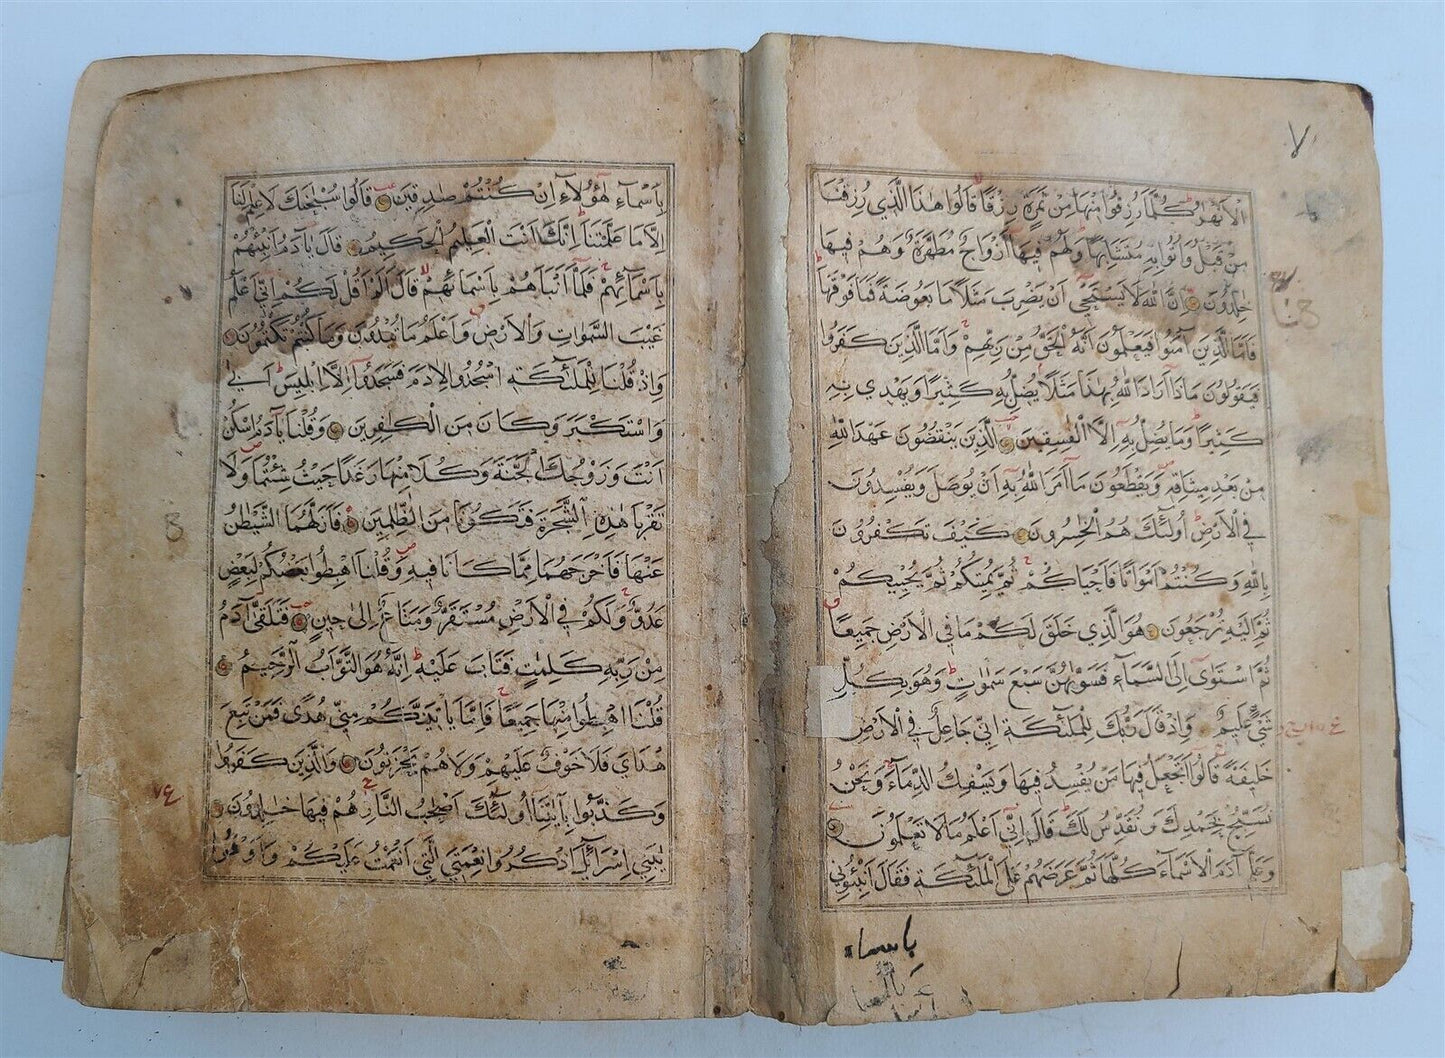 ٧
الْأَنْهٰرُ كُلَّمَا رُزِقُوا مِنْهَا مِنْ ثَمَرَةٍ رِزْقًا قَالُوا هٰذَا الَّذِي رُزِقْنَا
مِنْ قَبْلُ وَأُتُوا بِهِ مُتَشَابِهًا وَلَهُمْ فِيهَا أَزْوَاجٌ مُطَهَّرَةٌ وَهُمْ فِيهَا
خٰلِدُونَ إِنَّ اللّٰهَ لَا يَسْتَحْيِي أَنْ يَضْرِبَ مَثَلًا مَا بَعُوضَةً فَمَا فَوْقَهَا
فَأَمَّا الَّذِينَ آمَنُوا فَيَعْلَمُونَ أَنَّهُ الْحَقُّ مِنْ رَبِّهِمْ وَأَمَّا الَّذِينَ كَفَرُوا
فَيَقُولُونَ مَاذَا أَرَادَ اللّٰهُ بِهٰذَا مَثَلًا يُضِلُّ بِهِ كَثِيرًا وَيَهْدِي بِهِ
كَثِيرًا وَمَا يُضِلُّ بِهِ إِلَّا الْفٰسِقِينَ الَّذِينَ يَنْقُضُونَ عَهْدَ اللّٰهِ
مِنْ بَعْدِ مِيثَاقِهِ وَيَقْطَعُونَ مَا أَمَرَ اللّٰهُ بِهِ أَنْ يُوصَلَ وَيُفْسِدُونَ
فِي الْأَرْضِ أُولٰئِكَ هُمُ الْخٰسِرُونَ كَيْفَ تَكْفُرُونَ
بِاللّٰهِ وَكُنْتُمْ أَمْوَاتًا فَأَحْيَاكُمْ ثُمَّ يُمِيتُكُمْ ثُمَّ يُحْيِيكُمْ
ثُمَّ إِلَيْهِ تُرْجَعُونَ هُوَ الَّذِي خَلَقَ لَكُمْ مَا فِي الْأَرْضِ جَمِيعًا
ثُمَّ اسْتَوٰى إِلَى السَّمَاءِ فَسَوّٰىهُنَّ سَبْعَ سَمٰوَاتٍ وَهُوَ بِكُلِّ
شَيْءٍ عَلِيمٌ وَإِذْ قَالَ رَبُّكَ لِلْمَلٰئِكَةِ إِنِّي جَاعِلٌ فِي الْأَرْضِ
خَلِيفَةً قَالُوا أَتَجْعَلُ فِيهَا مَنْ يُفْسِدُ فِيهَا وَيَسْفِكُ الدِّمَاءَ وَنَحْنُ
نُسَبِّحُ بِحَمْدِكَ وَنُقَدِّسُ لَكَ قَالَ إِنِّي أَعْلَمُ مَا لَا تَعْلَمُونَ
وَعَلَّمَ آدَمَ الْأَسْمَاءَ كُلَّهَا ثُمَّ عَرَضَهُمْ عَلَى الْمَلٰئِكَةِ فَقَالَ أَنْبِئُونِي
باسماء
بِأَسْمَاءِ هٰؤُلَاءِ إِنْ كُنْتُمْ صٰدِقِينَ قَالُوا سُبْحٰنَكَ لَا عِلْمَ لَنَا
إِلَّا مَا عَلَّمْتَنَا إِنَّكَ أَنْتَ الْعَلِيمُ الْحَكِيمُ قَالَ يَا آدَمُ أَنْبِئْهُمْ
بِأَسْمَائِهِمْ فَلَمَّا أَنْبَأَهُمْ بِأَسْمَائِهِمْ قَالَ أَلَمْ أَقُلْ لَكُمْ إِنِّي أَعْلَمُ
غَيْبَ السَّمٰوَاتِ وَالْأَرْضِ وَأَعْلَمُ مَا تُبْدُونَ وَمَا كُنْتُمْ تَكْتُمُونَ
وَإِذْ قُلْنَا لِلْمَلٰئِكَةِ اسْجُدُوا لِآدَمَ فَسَجَدُوا إِلَّا إِبْلِيسَ أَبٰى
وَاسْتَكْبَرَ وَكَانَ مِنَ الْكٰفِرِينَ وَقُلْنَا يَا آدَمُ اسْكُنْ
أَنْتَ وَزَوْجُكَ الْجَنَّةَ وَكُلَا مِنْهَا رَغَدًا حَيْثُ شِئْتُمَا وَلَا
تَقْرَبَا هٰذِهِ الشَّجَرَةَ فَتَكُونَا مِنَ الظّٰلِمِينَ فَأَزَلَّهُمَا الشَّيْطٰنُ
عَنْهَا فَأَخْرَجَهُمَا مِمَّا كَانَا فِيهِ وَقُلْنَا اهْبِطُوا بَعْضُكُمْ لِبَعْضٍ
عَدُوٌّ وَلَكُمْ فِي الْأَرْضِ مُسْتَقَرٌّ وَمَتَاعٌ إِلٰى حِينٍ فَتَلَقّٰى آدَمُ
مِنْ رَبِّهِ كَلِمٰتٍ فَتَابَ عَلَيْهِ إِنَّهُ هُوَ التَّوَّابُ الرَّحِيمُ
قُلْنَا اهْبِطُوا مِنْهَا جَمِيعًا فَإِمَّا يَأْتِيَنَّكُمْ مِنِّي هُدًى فَمَنْ تَبِعَ
هُدَايَ فَلَا خَوْفٌ عَلَيْهِمْ وَلَا هُمْ يَحْزَنُونَ وَالَّذِينَ كَفَرُوا
وَكَذَّبُوا بِآيَاتِنَا أُولٰئِكَ أَصْحٰبُ النَّارِ هُمْ فِيهَا خٰلِدُونَ
يٰبَنِي إِسْرَائِيلَ اذْكُرُوا نِعْمَتِيَ الَّتِي أَنْعَمْتُ عَلَيْكُمْ وَأَوْفُوا